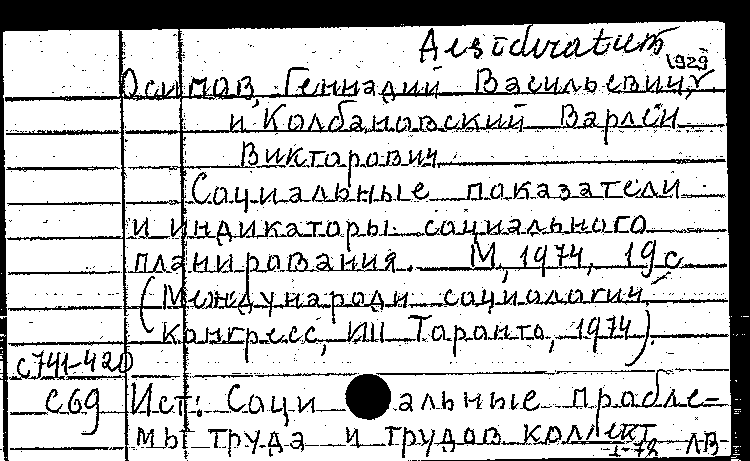 Desideratum
Осипов, Геннадий Васильевич, 1929
и Колбановский Варлен
Викторович
Социальные показатели
и индикаторы социального
планирования. М, 1974, 19с
(Международн социологич.
конгресс, VIII Торонто, 1974).
с741-420
с69 Ист: Социальные пробле-
мы труда и трудов коллект
I-78 ЛВ